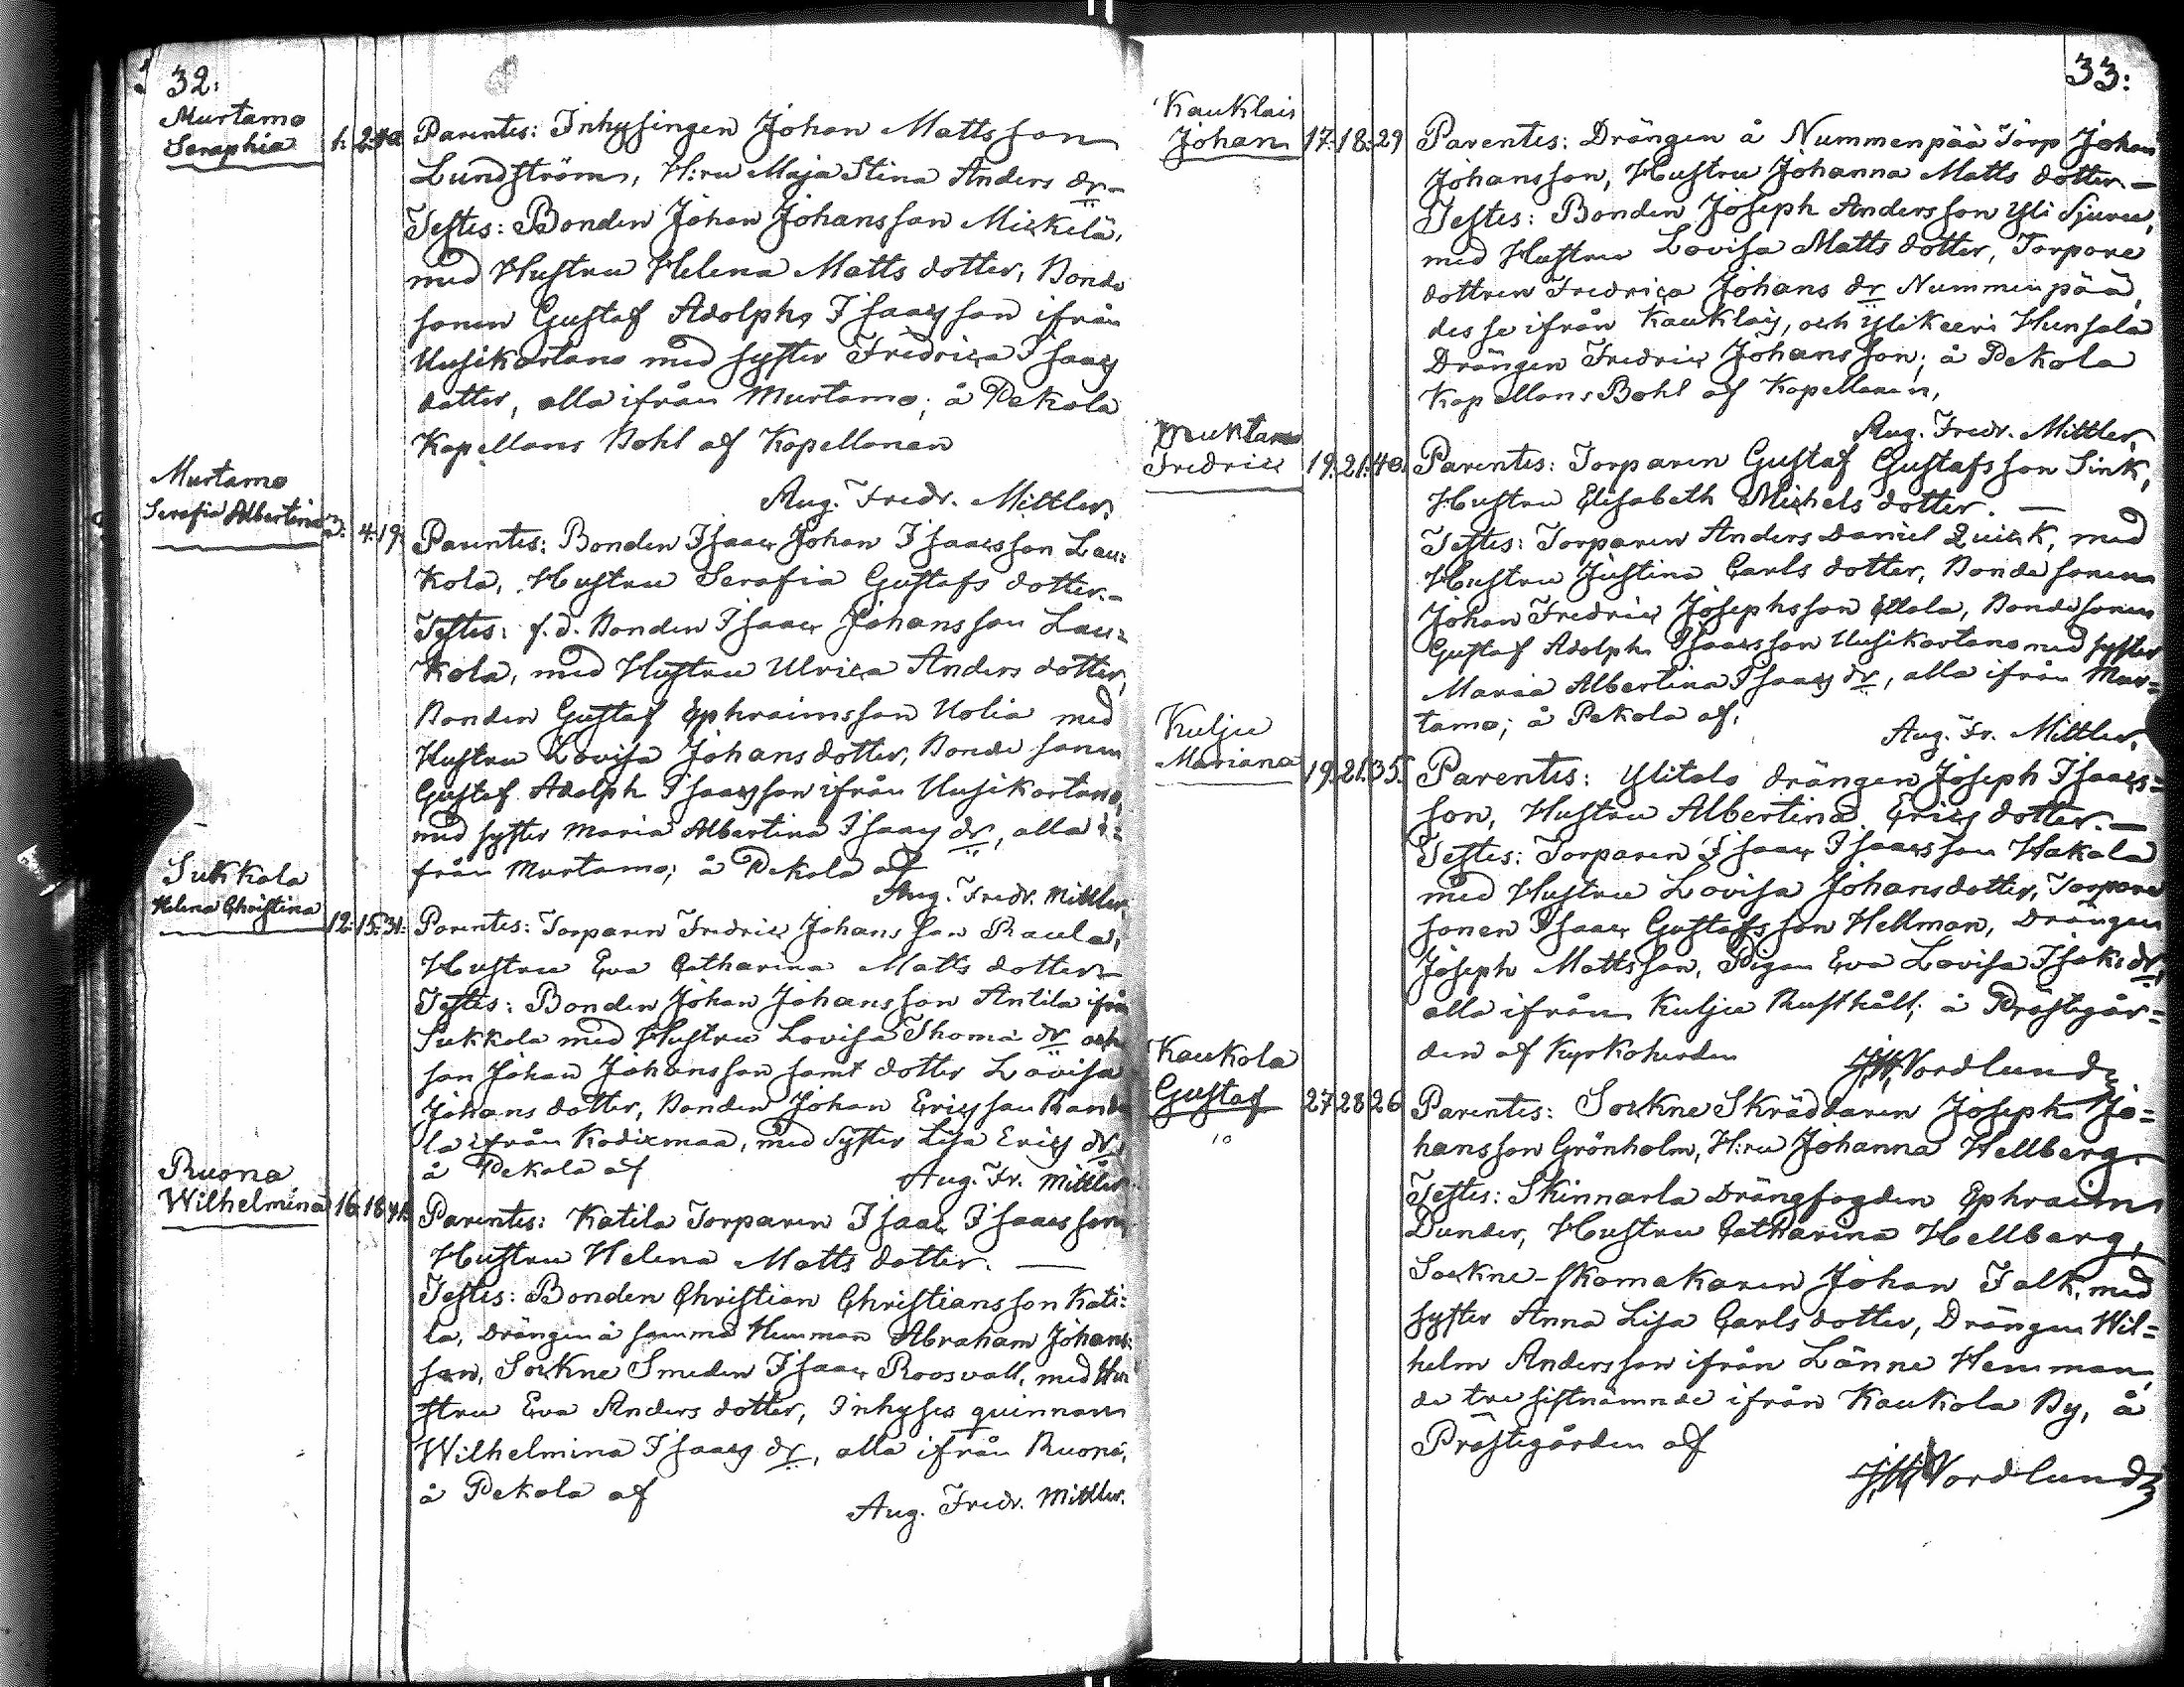 32:
Murtamo
Seraphia 1. 2. 40
Parentes: Inhysingen Johan Mattsson
Lundström, H:ru Maja Stina Anders dr.–
Testes: Bonden Johan Johansson Mickelä,
med Hustru Helena Matts dotter, Bonde
sonen Gustaf Adolph Isaacsson ifrån
Uusikartano med syster Fredrica Isaacs
dotter, alla ifrån Murtamo; å Pekola
Kapellans Bohl af Kapellanen
Aug. Fredr. Mittler.
Murtamo
Serafia Albertina 3. 4. 19.
Parentes: Bonden Isaac Johan Isaacsson Lau=
kola, Hustru Serafia Gustafs dotter.–
Testes: f.d. Bonden Isaac Johansson Lau=
kola, med Hustru Ulrica Anders dotter,
Bonden Gustaf Ephraimsson Uolia med
Hustru Lovisa Johans dotter, Bonde sonen
Gustaf Adolph Isaacsson ifrån Uusikartano,
med syster Maria Albertina Isaacs dr, alla i=
från Murtamo; å Pekola af
Aug. Fredr. Mittler.
Sukkola
Helena Christina 12. 15. 31.
Parentes: Torparen Fredric Johansson Raula,
Hustru Eva Catharina Matts dotter–
Testes: Bonden Johan Johansson Antila ifrån
Sukkola med Hustru Lovisa Thomä dr och
son Johan Johansson samt dotter Lovisa
Johans dotter, Bonden Johan Ericsson Rando
la ifrån Kodixmaa, med Syster Lisa Erics dr,
å Pekola af Aug. Fr. Mittler.
Ruona
Wilhelmina 16. 18. 41.
Parentes: Katila Torparen Isaac Isaacsson,
Hustru Helena Matts dotter. —
Testes: Bonden Christian Christiansson Kati=
la, drängen å samma Hemman Abraham Johans=
son, Sockne Smeden Isaac Roosvall, med Hu
stru Eva Anders dotter, Inhyses quinnan
Wilhelmina Isaacs dr, alla ifrån Ruona,
å Pekola af
Aug. Fredr. Mittler.
33:
Kauklais
Johan 17. 18. 29
Parentes: Drängen å Nummenpää Torp Johan
Johansson, Hustru Johanna Matts dotter.—
Testes: Bonden Joseph Andersson Yli Sjuru,
med Hustru Lovisa Matts dotter, Torpare
dottren Fredrica Johans dr Nummenpää,
desse ifrån Kauklais, och Ylikeeri Hunsala
Drängen Fredric Johansson; å Pekola
Kapellans Bohl af Kapellanen,
Aug. Fredr. Mittler,
Fredric 19. 21. 40.
Parentes: Torparen Gustaf Gustafsson Sink,
Hustru Elisabeth Michels dotter. —
Testes: Torparen Anders Daniel Quick, med
Hustru Justina Carls dotter, Bonde sonen
Johan Fredric Josephsson Ellola, Bondesonen
Gustaf Adolph Isaacsson Uusikartano med syster
Maria Albertina Isaacs dr, alla ifrån Mur=
tamo; å Pekola af.
Aug. Fr. Mittler,
Kulju
Mariana 19. 21. 35.
Parentes: Ylitalo drängen Joseph Isaacs=
son, Hustru Albertina Erics dotter.—
Testes: Torparen Isaac Isaacsson Hakala
med Hustru Lovisa Johansdotter, Torpare
sonen Isaac Gustafsson Hellman, Drängen
Joseph Mattsson, Pigan Eva Lovisa Isaks dr,
alla ifrån Kulju Rusthåll; å Prästegår=
den af Kyrkoherden
Nordlund
Kaukola
Gustaf 27 28 26
Parentes: Sockne Skräddaren Joseph Jo=
hansson Grönholm, H:ru Johanna Hellberg.
Testes: Skinnarla Drängfogden Ephraim
Dunder, Hustru Catharina Hellberg,
Sockne-skomakaren Johan Falk, med
syster Anna Lisa Carls dotter, Drängen Wil=
helm Andersson ifrån Länne Hemman,
de tre sistnämnde ifrån Kaukola By, å
Prästegården af
Nordlund